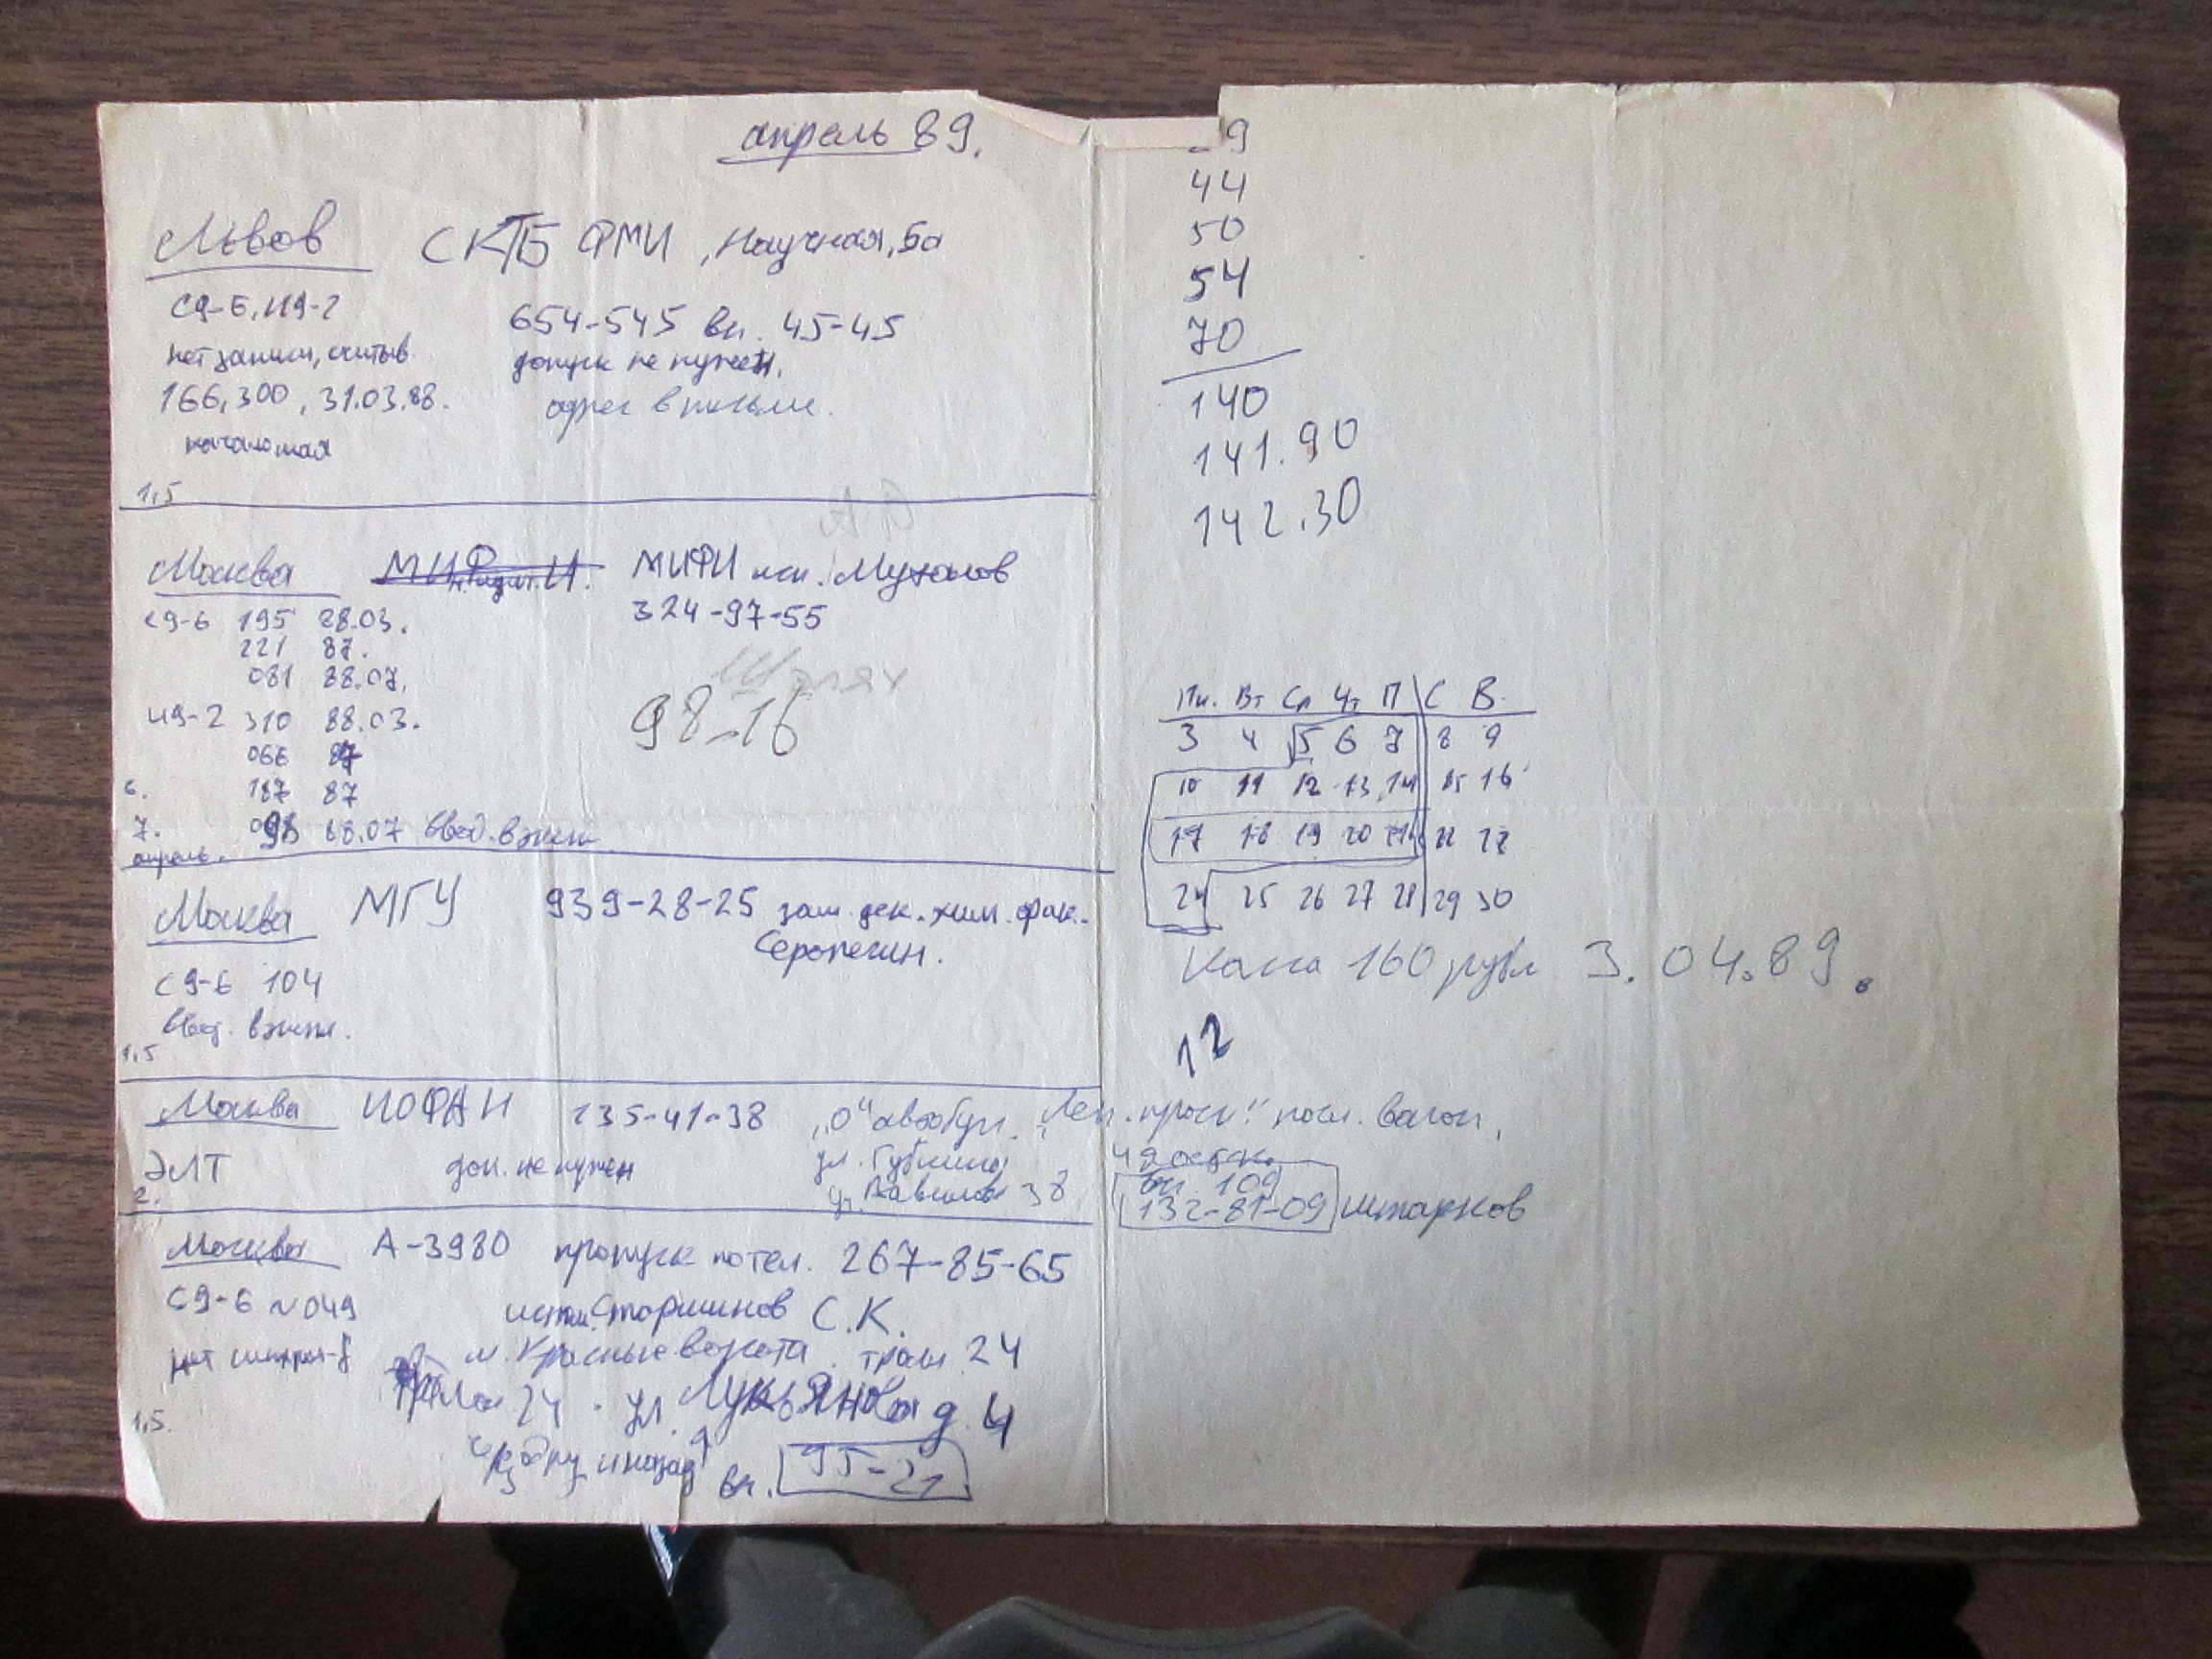 апрель 89.
Львов СКТБ ФМИ, Научная, 5а
С9-6, И9-2
654-545 вн. 45-45
нет записи, считыв.
допуск не нужен.
166, 300, 31.03.88.
адрес в письме.
начало мая
1,5
Москва МИФИ инж.
324-97-55
С9-6 195 88.03.
221 87.
081 88.07.
И9-2 310 88.03.
98-16
066 87
6. 187 87
7. 88.07 ввод. в экспл.
апрель.
Москва МГУ 939-28-25 зам. дек. хим. фак.
Серопегин.
С9-6 104
ввод. в экспл.
1,5
Москва ИОФАН 135-41-38 "0" автобус. "Лен. просп." посл. вагон,
ЭЛТ доп. не нужен ул. Губкина
ул. Вавилова 38
2.
Москва А-3980 пропуск по тел. 267-85-65
С9-6 №049
Старшинов С.К.
нет
м. Красные ворота трам 24
24. ул. Лукьянова д 4
1,5.
одну и назад
вн. 95-21
9
44
50
54
70
140
141.90
142.30
Пн. Вт Ср Чт П С В.
3 4 5 6 7 8 9
10 11 12 13 14 15 16
17 18 19 20 21 22
24 25 26 27 28 29 30
Касса 160 рубл 3.04.89.
12
вн. 109
132-81-09 Штарков